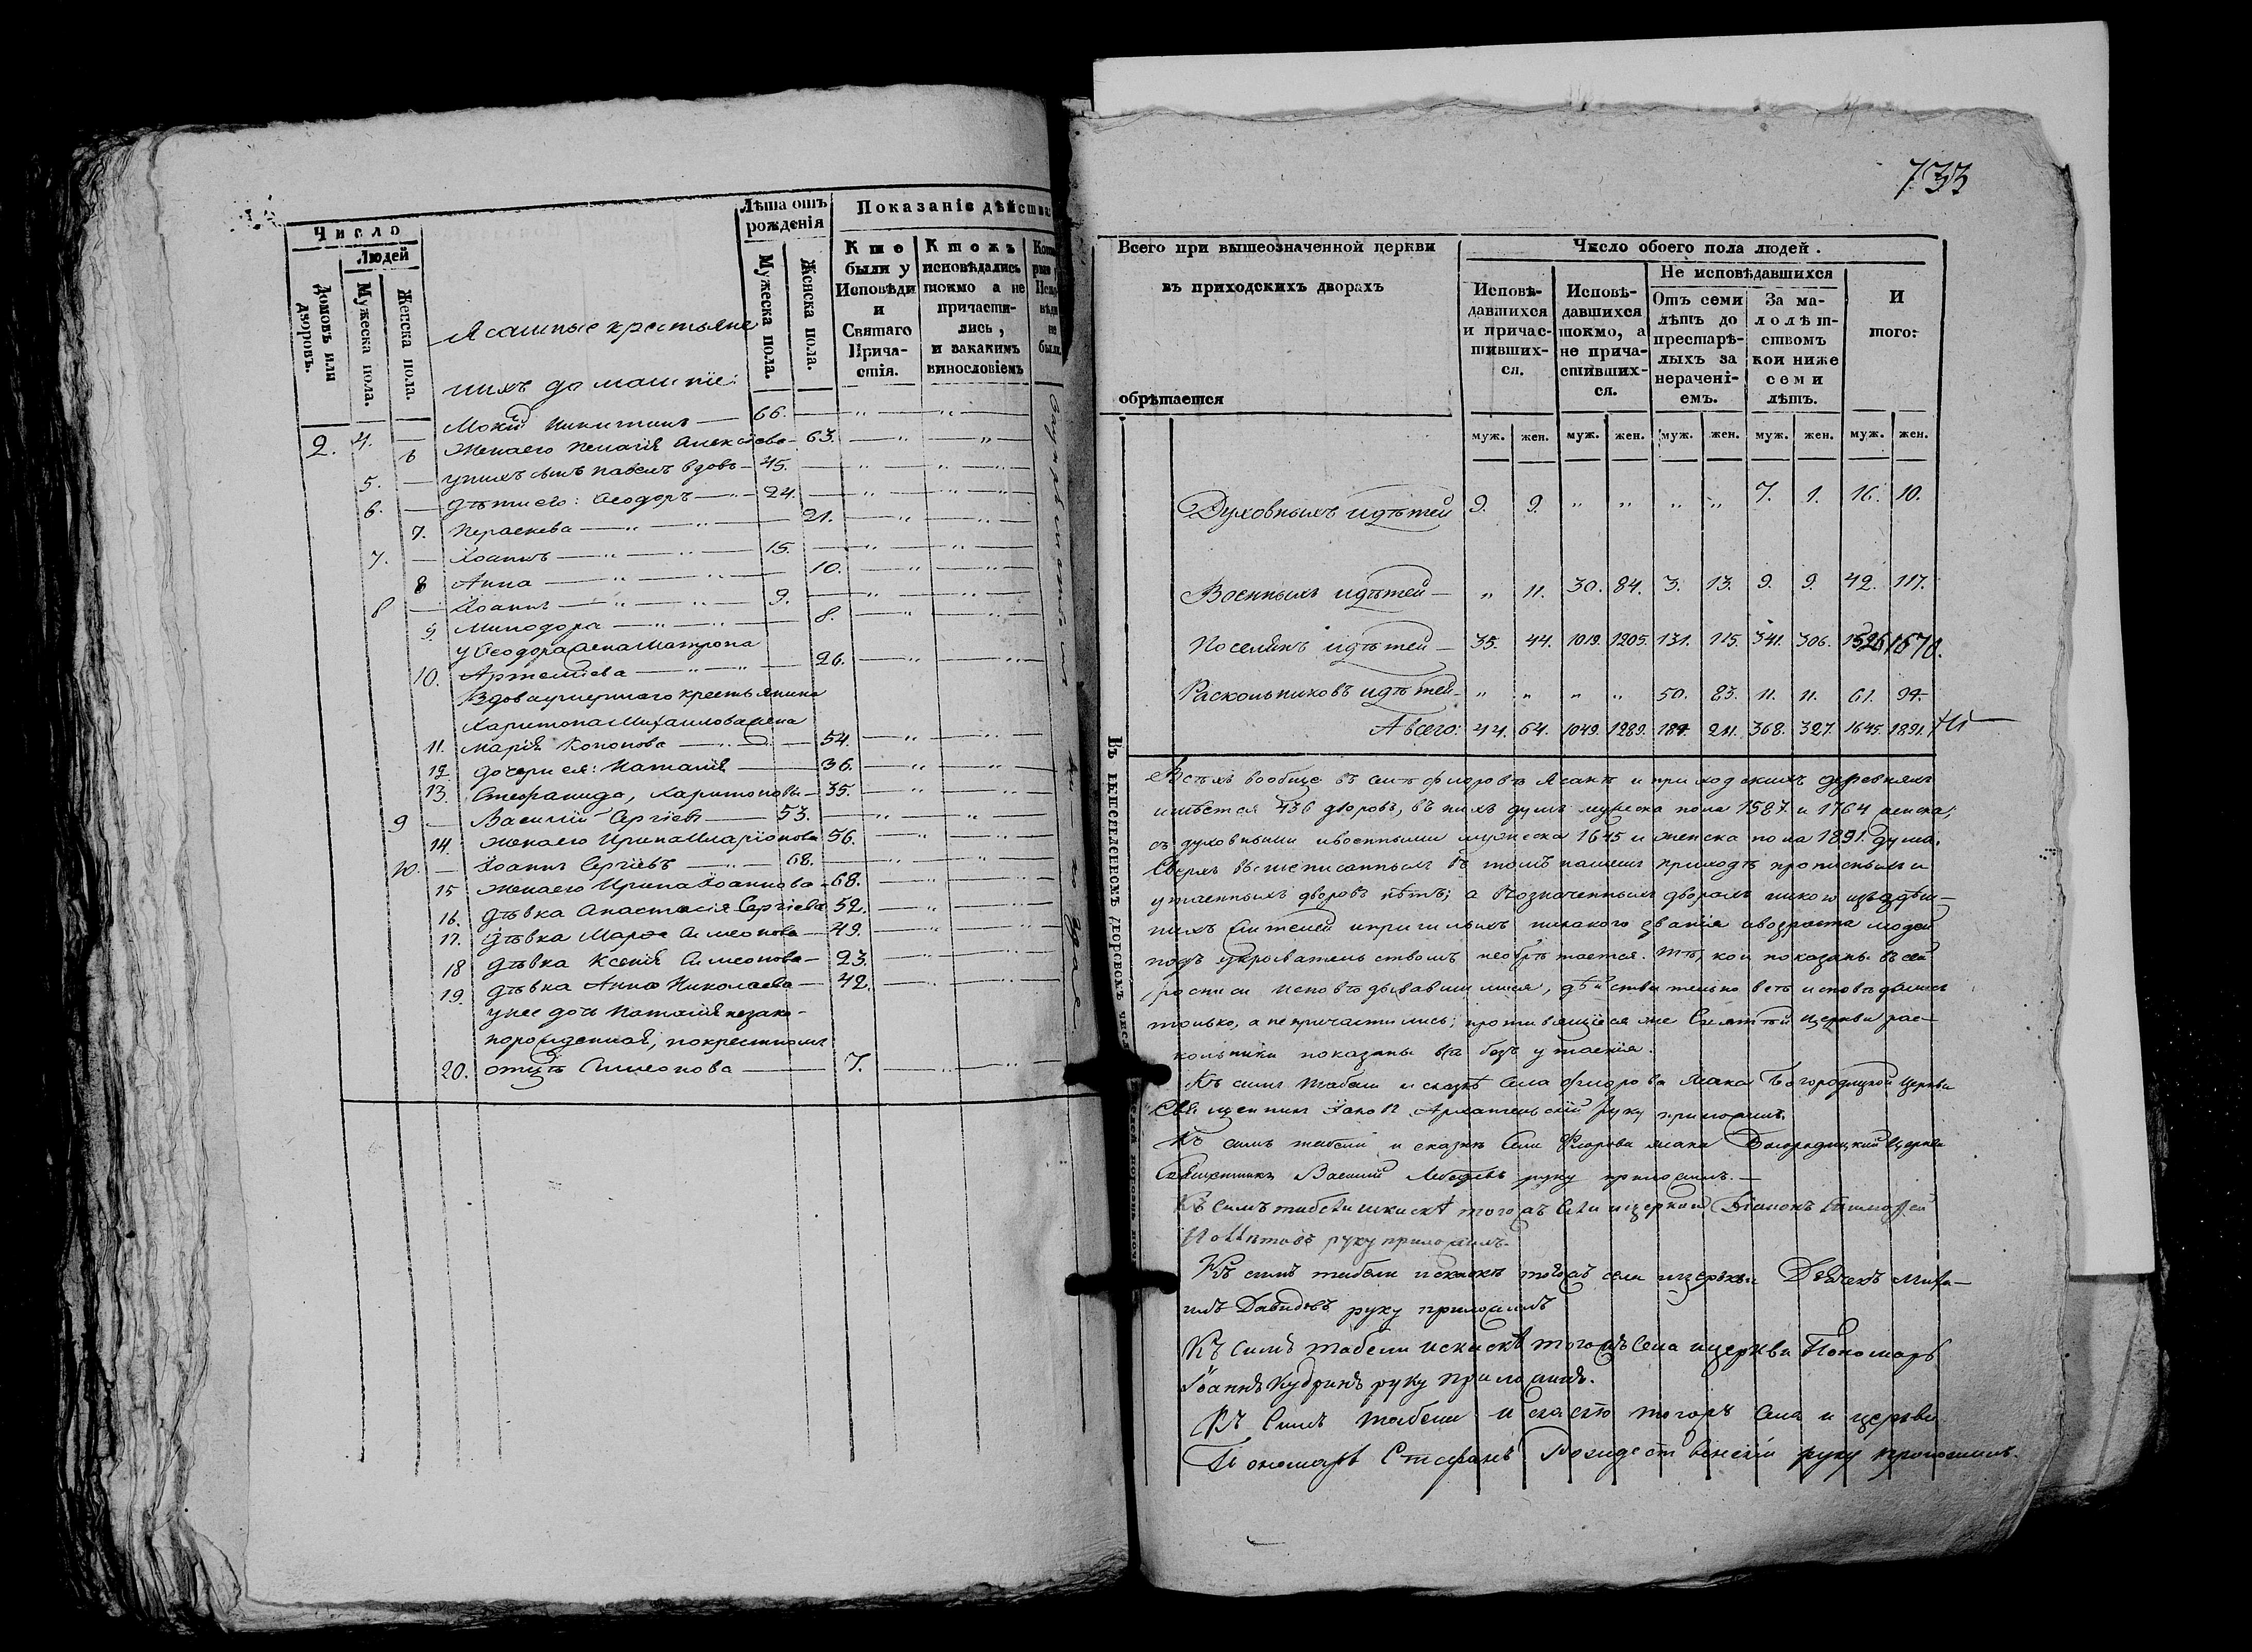 Число
Людей
Домовъ или дворовъ.
Мужеска пола.
Женска пола.
Ясашные крестьяне
ихъ домашніе:
Лѣта отъ рожденія
Мужеска пола.
Женска пола.
Показаніе дѣйства:
Кто были у Исповѣди и Святаго Прича-стія.
Ктожъ исповѣдались токмо а не причасти-лись, и закакимъ винословіемъ
2. 4. — Мокій Никитинъ — 66.
6 Жена его Пелагія Алексіева — 63.
5. — у нихъ сынъ Павелъ вдовъ — 45.
6. — дѣти его: Ѳеодоръ — 24.
7. Параскева — 21.
7. — Іоаннъ — 15.
8 Анна — 10.
8 — Іоаннъ — 9.
9. Минодора — 8.
у Ѳеодора жена Матрона
10. Артеміева — 26.
Вдова умершаго крестьянина
Харитона Михаилова жена
11. Марія Кононова — 54.
12. дочери ея: Наталія — 36.
13. Стефанида, Харитоновы — 35.
9 — Василій Сергіевъ — 53.
14. Жена его Ирина Иларіонова 56.
10. — Іоаннъ Сергіевъ — 68.
15 Жена его Ирина Іоаннова — 68.
16. дѣвка Анастасія Сергіева 52.
17. дѣвка Марѳа Симеонова — 49.
18 дѣвка Ксенія Симеонова — 23.
19. дѣвка Анна Николаева — 42.
у нее дочь Наталія незако-
норожденная, по крестномъ
20. отцѣ Симеонова — 7.
733
Всего при вышеозначенной церкви
въ приходскихъ дворахъ
обрѣтается
Число обоего пола людей.
Исповѣ-давшихся и причас-тивших-ся.
Исповѣ-давшихся токмо, а не прича-стивших-ся.
Не исповѣдавшихся
Отъ семи лѣтъ до престарѣ-лыхъ за нерачені-емъ.
За ма-лолѣт-ствомъ кои ниже семи лѣтъ.
И того:
муж. жен. муж. жен. муж. жен. муж. жен. муж. жен.
Духовныхъ и дѣтей 9. 9. „ „ „ „ 7. 1. 16. 10.
Военныхъ и дѣтей — „ 11. 30. 84. 3. 13. 9. 9. 42. 117.
Поселянъ и дѣтей — 35. 44. 1019. 1205. 131. 115. 341. 306. 1526 1670.
Раскольниковъ и дѣтей — „ „ „ „ 50. 83. 11. 11. 61. 94.
А всего: 44. 64. 1049. 1289. 184. 211. 368. 327. 1645. 1891.
Всѣхъ вообще въ селѣ Фпоровѣ Ясакѣ и приходскихъ деревняхъ
имѣется 436 дворовъ, въ нихъ душъ мужеска пола 1587. и 1764 женска;
съ духовными и военными мужеска 1645 и женска пола 1891. душа.
Сверхъ вышеписанныхъ въ томъ нашемъ приходѣ прописныхъ и
утаенныхъ дворовъ нѣтъ; а въ означенныхъ дворахъ никого изъ здѣш-
нихъ жителей и пришлыхъ никакого званія и возраста людей
подъ укрывательствомъ не обрѣтается. Тѣ, кои показаны въ сей
росписи исповѣдывавшимися, дѣйствительно всѣ исповѣдались
только, а не причастились; противящіеся же Святой церкви рас-
кольники показаны всѣ безъ утаенія.
Къ симъ табели и сказкѣ Села Флорова Ясака Богородицкой церкви
Священникъ Іаковъ Архангельскій руку приложилъ.
Къ симъ табели и сказкѣ Села Флорова Ясака Богородицкой церкви
Священникъ Василій Лебедевъ руку приложилъ. —
Къ симъ табели и сказкѣ тогожъ села и церкви Діаконъ Тимоѳей
руку приложилъ.
Къ симъ табели и сказкѣ тогожъ села и церкви Дьячекъ Миха-
илъ Давидовъ руку приложилъ
Къ симъ табели и сказкѣ тогожъ села и церкви Пономарь
Іоаннъ Кудринъ руку приложилъ.
Къ симъ табели и сказкѣ тогожъ села и церкви
Пономарь Стефанъ Рождественскій руку приложилъ.